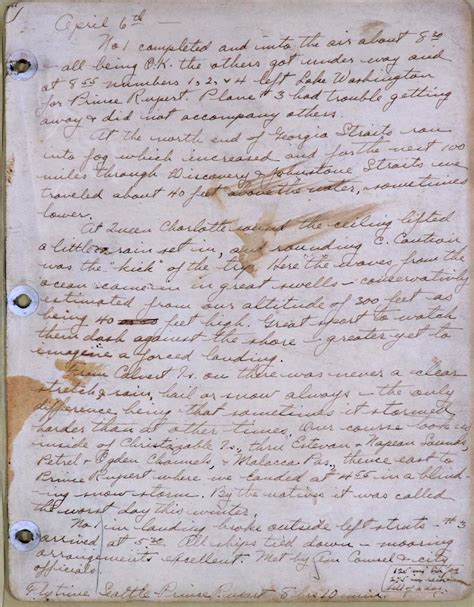 April 6th —
No 1 completed and into the air about 8 30
- all being O.K. the others got under way and
at 8 55 numbers 1, 2, & 4 left Lake Washington
for Prince Rupert. Plane #3 had trouble getting
away & did not accompany others.
At the north end of Georgia Straits ran
into fog which increased and for the next 100
miles through Discovery & Johnstone Straits we
traveled about 40 feet above the water, sometimes
lower.
At Queen Charlotte sound the ceiling lifted
a little rain set in, and rounding C. Caution
was the "kick" of the trip. Here the waves from the
ocean came in in great swells - conservatively
estimated from our altitude of 300 feet as
being 40 feet high. Great sport to watch
them dash against the shore - greater yet to
imagine a forced landing.
From Calvert Is. on there was never a clear
stretch & rain, hail or snow always - the only
difference being that sometimes it stormed
harder than at other times. Our course took us
inside of Is., thru Estevan & Nepean Sounds,
Petrel & Ogden Channels, & Malacca Pas., thence east to
Prince Rupert where we landed at 4 55 in a blind-
ing snow storm. By the natives it was called
the worst day this winter.
No. 1 in landing broke outside left struts - #3
arrived at 5 20. All ships tied down - mooring
arrangements excellent. Met by Am Counsel & city
officials.
Fly time Seattle - Prince Rupert 8 hrs 10 mins.
125 in
275 in